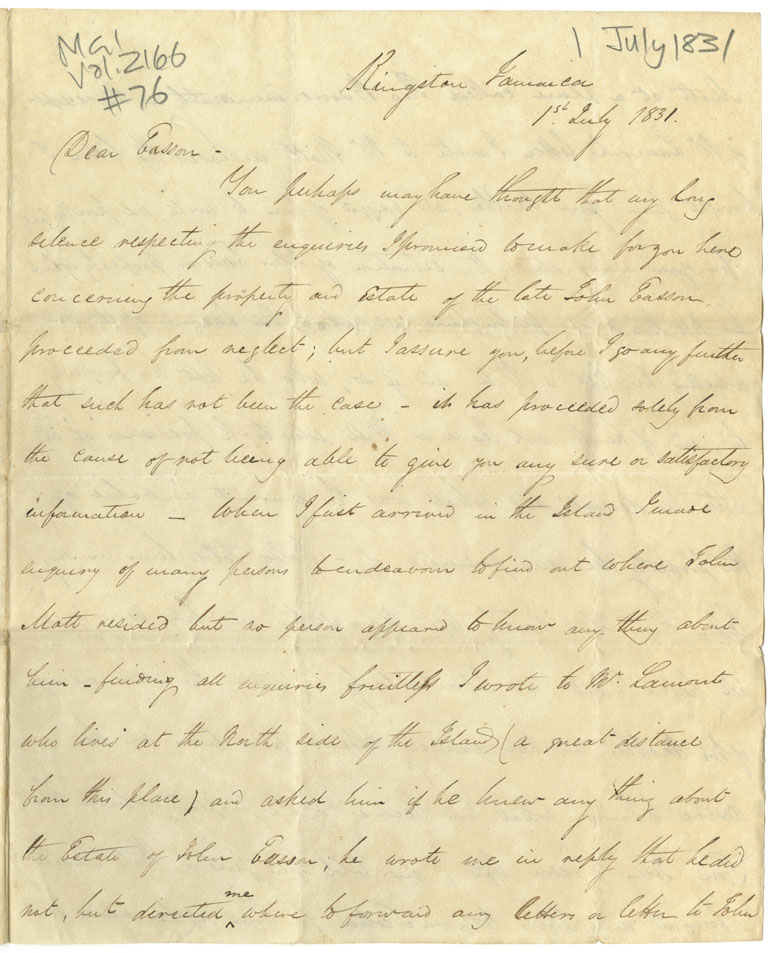 MG1
Vol. 2166
#76
1 July 1831
Kingston Jamaica
1st July 1831.
Dear Easson -
You perhaps may have thought that my long
silence respecting the enquiries I promised to make for you here
concerning the property and Estate of the late John Easson.
proceeded from neglect; but I assure you, before I go any further
that such has not been the case - it has proceeded solely from
the cause of not being able to give you any sure or satisfactory
information - When I first arrived in the Island I made
enquiry of many persons to endeavour to find out where John
Mott resided but no person appeared to know any thing about
him - finding all enquiries fruitless I wrote to Mr. Lamont
who lives at the North side of the Island (a great distance
from this place) and asked him if he knew any thing about
the Estate of John Easson, he wrote me in reply that he did
not, but directed me where to forward any letters or letter to John